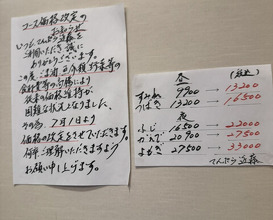 コース価格改定の
お知らせ
いつもてんぷら近藤を
ご利用いただき誠に
ありがとうございます。
この度、油・野菜等の
食材費等の高騰により
従来の価格維持が
困難な状況となりました。
その為、7月1日より
価格の改定をさせていただきます。
何卒ご理解いただきますよう
お願い申し上げます。
昼 (税込)
すみれ 9900 → 13200
つばき 13200 → 16500
夜
ふじ 16500 → 22000
かえで 20900 → 27500
よもぎ 27500 → 33000
てんぷら近藤